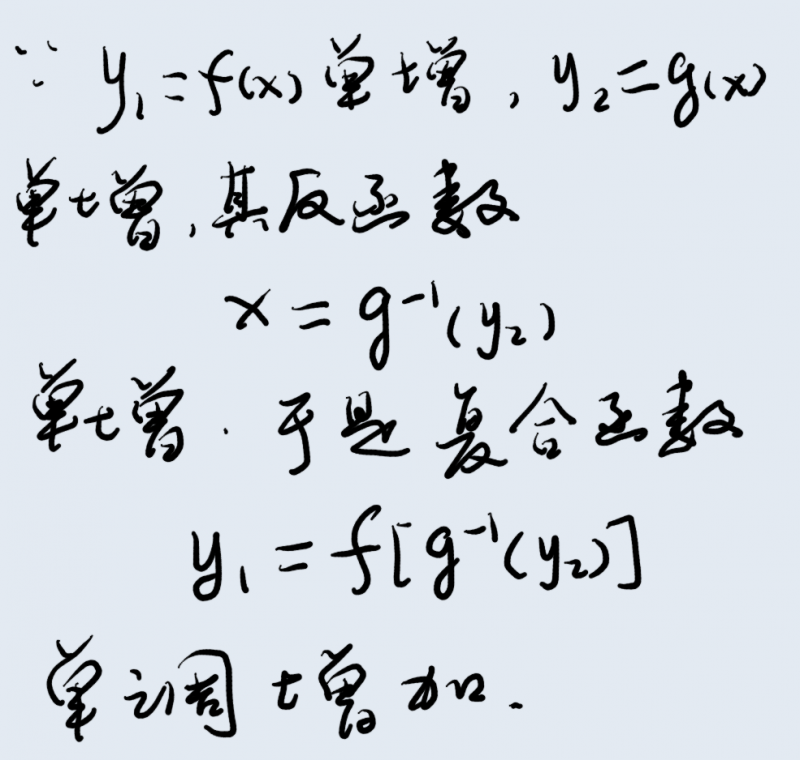 ∵ y₁=f(x)单增,y₂=g(x)
单增,其反函数
x=g⁻¹(y₂)
单增.于是复合函数
y₁=f[g⁻¹(y₂)]
单调增加.